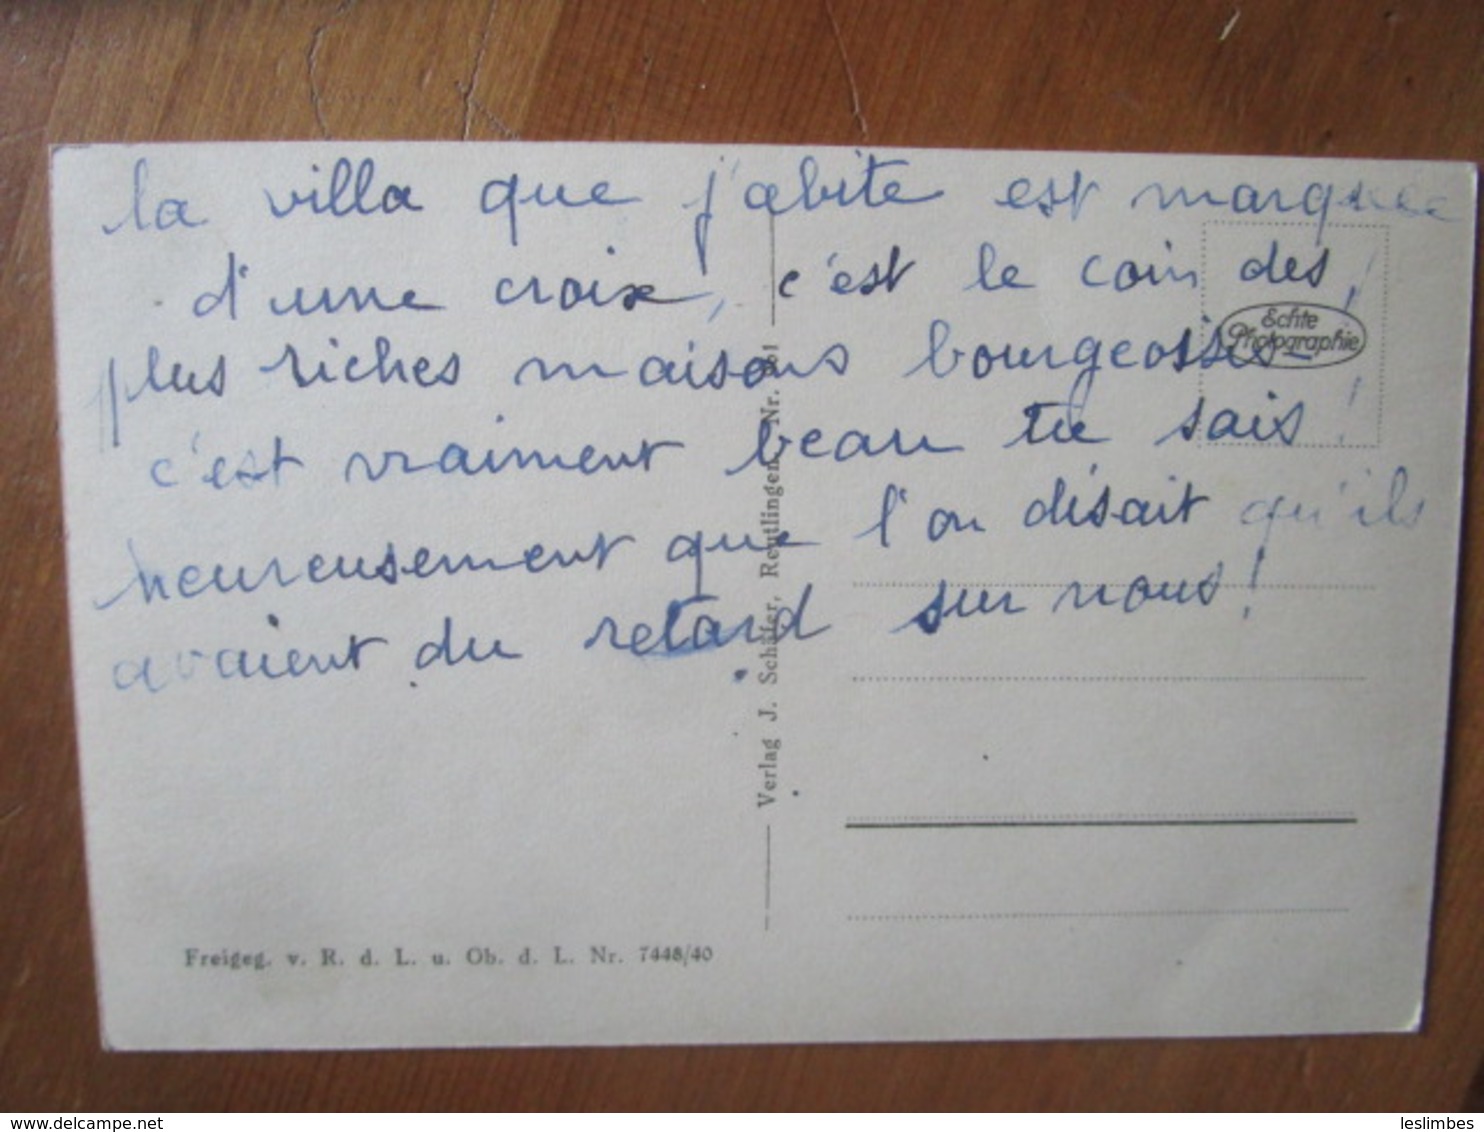 la villa que j'abite est marquee
d'une croix, c'est le coin des
plus riches maisons bourgeoisis
c'est vraiment beau tu sais !
heureusement que l'on disait qu'ils
avaient du retard sur nous !
Echte
Photographie
Verlag J. Schäfer, Reutlingen Nr.
Freigeg. v. R. d. L. u. Ob. d. L. Nr. 7448/40
leslimbes